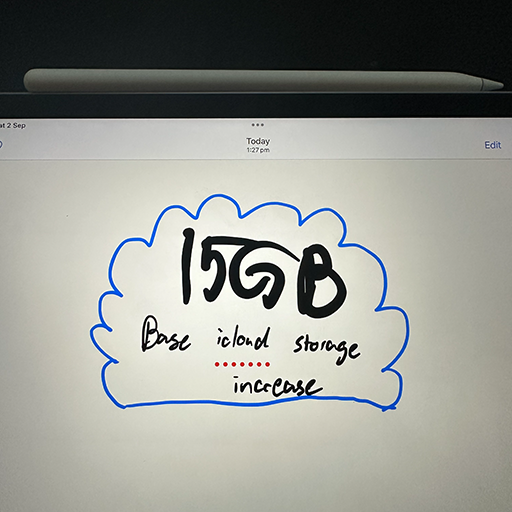 at 2 Sep
Today
1:27 pm
Edit
15GB
Base icloud storage
increase